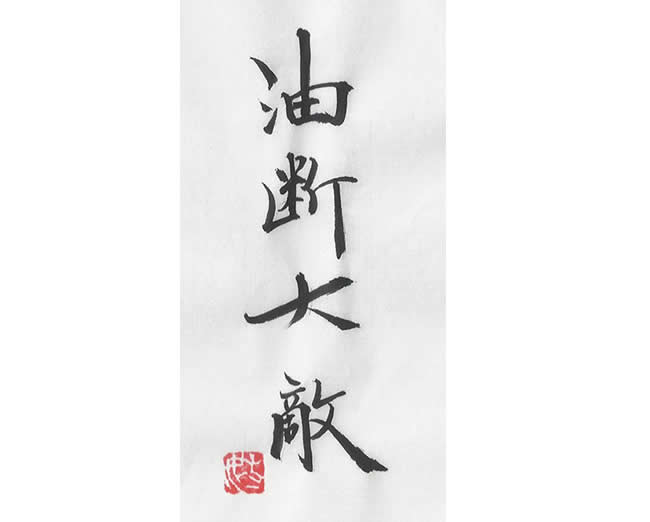 油断大敵